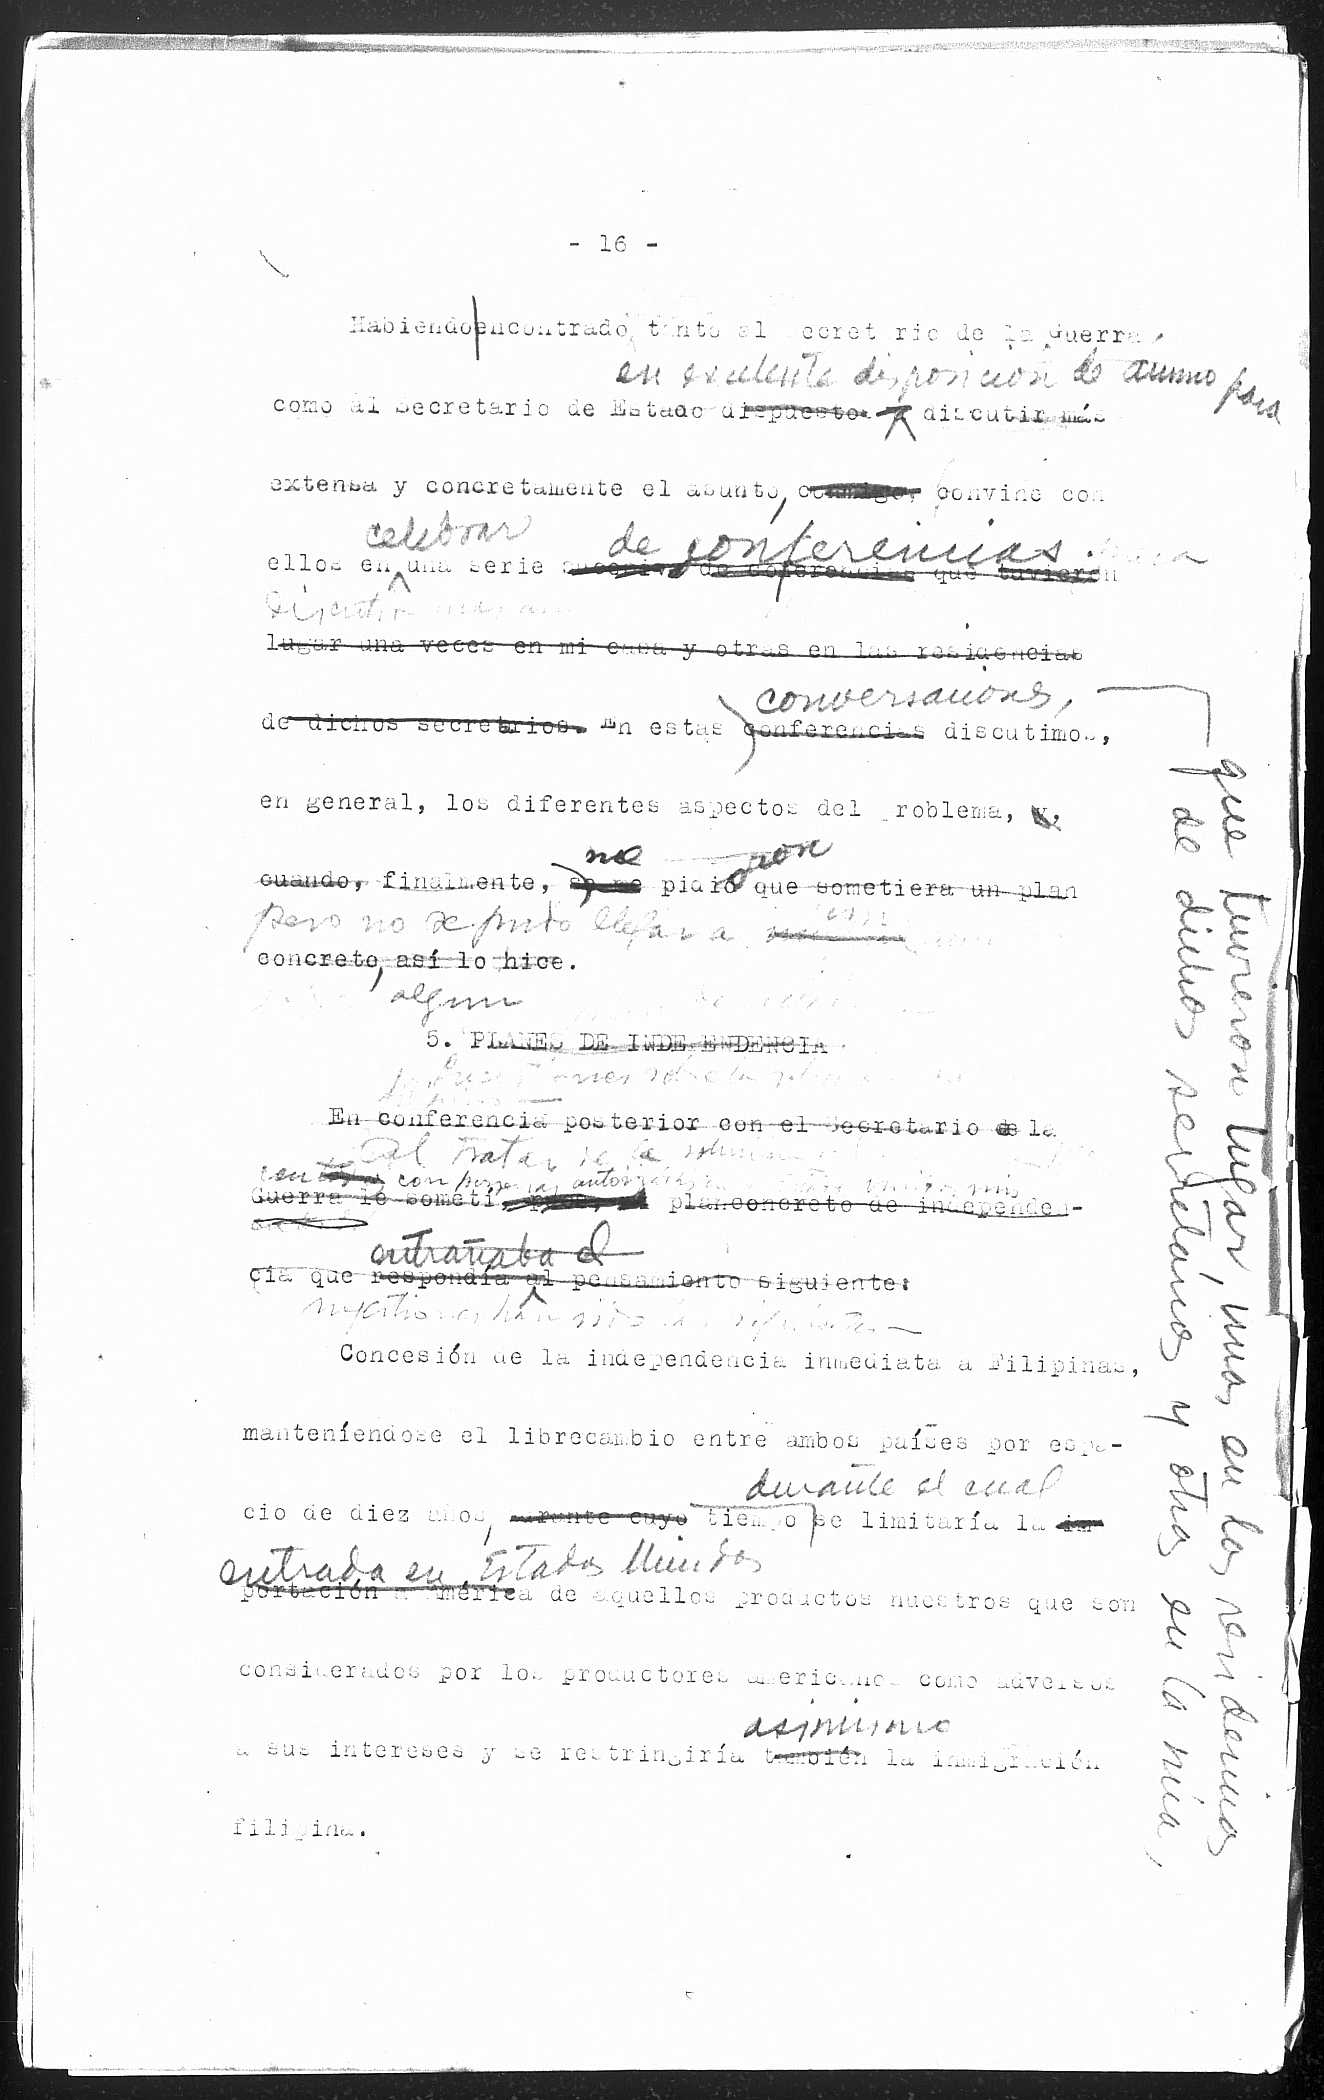 - 16 -
Habiendo encontrado, tanto al Secretario de la Guerra,
en excelente disposición de ánimo para
como al Secretario de Estado dispuestos a discutir más
extensa y concretamente el asunto, conmigo, convine con
celebrar de conferencias
ellos en una serie de coferencias que tuvieron
discutir
lugar una veces en mi casa y otras en las residencias
conversaciones,
de dichos secretrios. En estas conferencias discutimos,
en general, los diferentes aspectos del problema, y,
me ron
cuando, finalmente, se me pidió que sometiera un plan
pero no se pudo llegar a
concreto, así lo hice.
algun
5. PLANES DE INDEPENDENCIA
En conferencia posterior con el Secretario de la
Al tratar de la
con personas autorizadas mis
Guerra le sometí, pues, un planconcreto de independen-
entrañaba el
cia que respondía al pensamiento siguiente:
han sido
Concesión de la independencia inmediata a Filipinas,
manteníendose el librecambio entre ambos países por espa-
durante el cual
cio de diez años, durante cuyo tiempo se limitaría la im-
entrada en Estados Unidos
portación a América de aquellos productos nuestros que son
considerados por los productores americanos como adversos
asimismo
a sus intereses y se restringiría también la inmigración
filipina.
que tuvieron lugar, unas en las residencias
de dichos secretarios y otras en la mía,